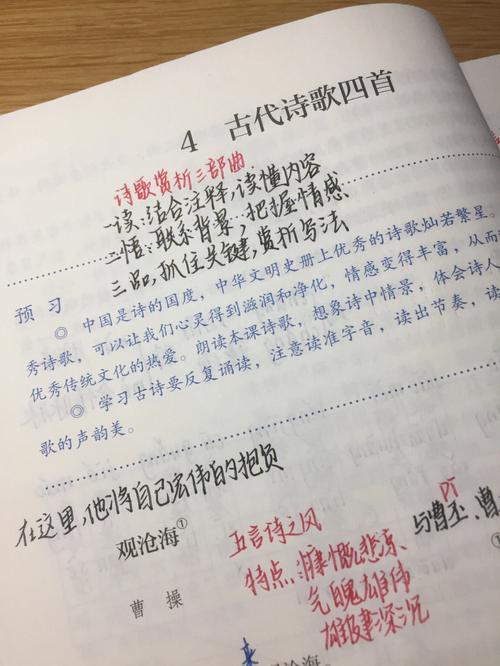 4 古代诗歌四首
诗歌赏析三部曲
一读:结合注释,读懂内容
二悟:联系背景,把握情感
三品,抓住关键,赏析写法
预习
◎ 中国是诗的国度,中华文明史册上优秀的诗歌灿若繁星。
秀诗歌,可以让我们心灵得到滋润和净化,情感变得丰富,从而
优秀传统文化的热爱。朗读本课诗歌,想象诗中情景,体会诗人
◎ 学习古诗要反复诵读,注意读准字音,读出节奏,读
歌的声韵美。
在这里,他将自己宏伟的抱负
观沧海①
曹操
五言诗之风
特点:慷慨悲凉
气魄雄伟
雄健深沉
pī
与曹丕、曹